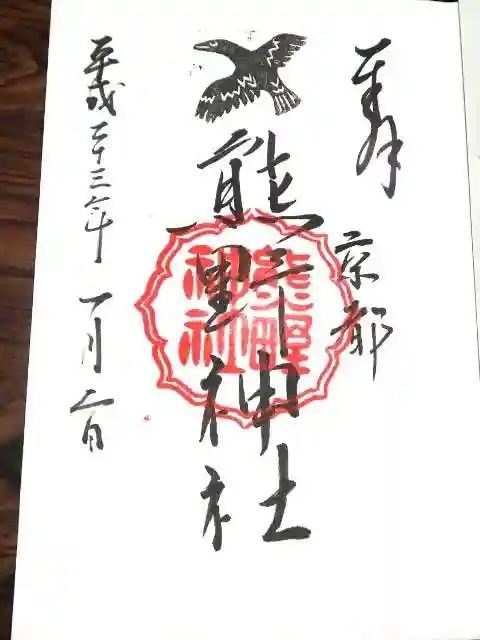 奉拝
京都
熊野神社
熊野神社
平成二十三年 一月二日